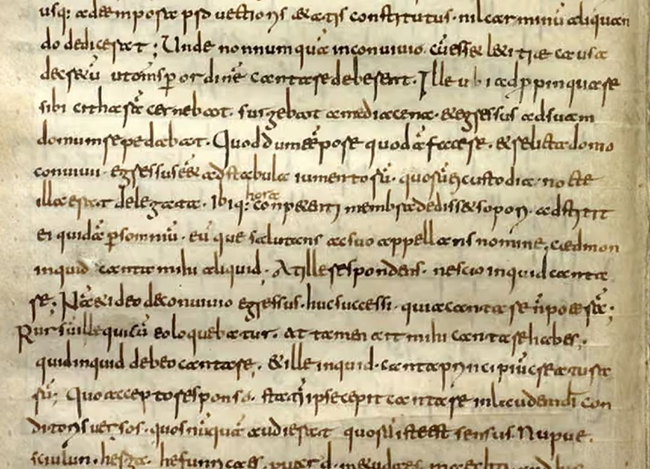 usq; ad tempora pfectioris ætatis constitutus · nil carminũ aliquan
do dedicerat ; Unde non numquã in conuiuio · cũ esset lætitiæ causa
decretũ ut oms p ordinẽ cantare deberent · Ille ubi adppinquare
sibi citharã cernebat · surgebat a media cena · & egressus ad suam
domum repedabat · Quod dum tẽpore quodã faceret · & relicta domo
conuiuii · egressus ẽẽt ad stabula iumentorũ · quorũ ei custodia nocte
illa erat delegata · Ibiq; hora conpetenti membra dedisset sopori · adstitit
ei quidã p somniũ · eũque salutans ac suo appellans nomine, caedmon
inquid canta mihi aliquid · At ille respondens · nescio inquid canta
re ; Nã & ideo de conuiuio egressus · huc successi · quia cantare n̄ poterã ;
Rursũ ille qui cũ eo loquebatur · at tamen ait mihi cantare habes ;
quid inquid debeo cantare · & ille inquid · canta principiũ creatura
rũ ; Quo accepto responso · statĩ ipse cepit cantare in laudem dei con
ditoris uersos · quos nũquã audierat quorũ iste est sensus · Nu pue ·
sciulun · herga · hefunricaes · uard ·